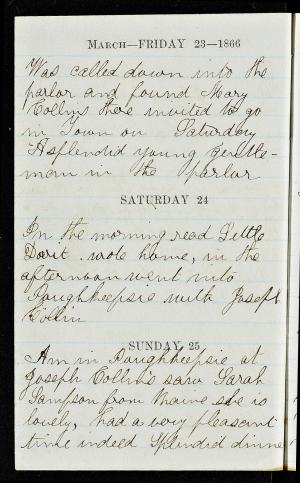 MARCH—FRIDAY 23—1866
Was called down into the
parlor and found Mary
Collins there invited to go
in Town on Saturday
A splendid young gentle-
man in the parlor
SATURDAY 24
In the morning read Little
Dorit. wrote home, in the
afternoon went into
Poughkeepsie with Joseph
Collin
SUNDAY 25
Am in Poughkeepsie at
Joseph Collin's saw Sarah
Sampson from Maine she is
lovely, had a very pleasant
time indeed Splendid dinne